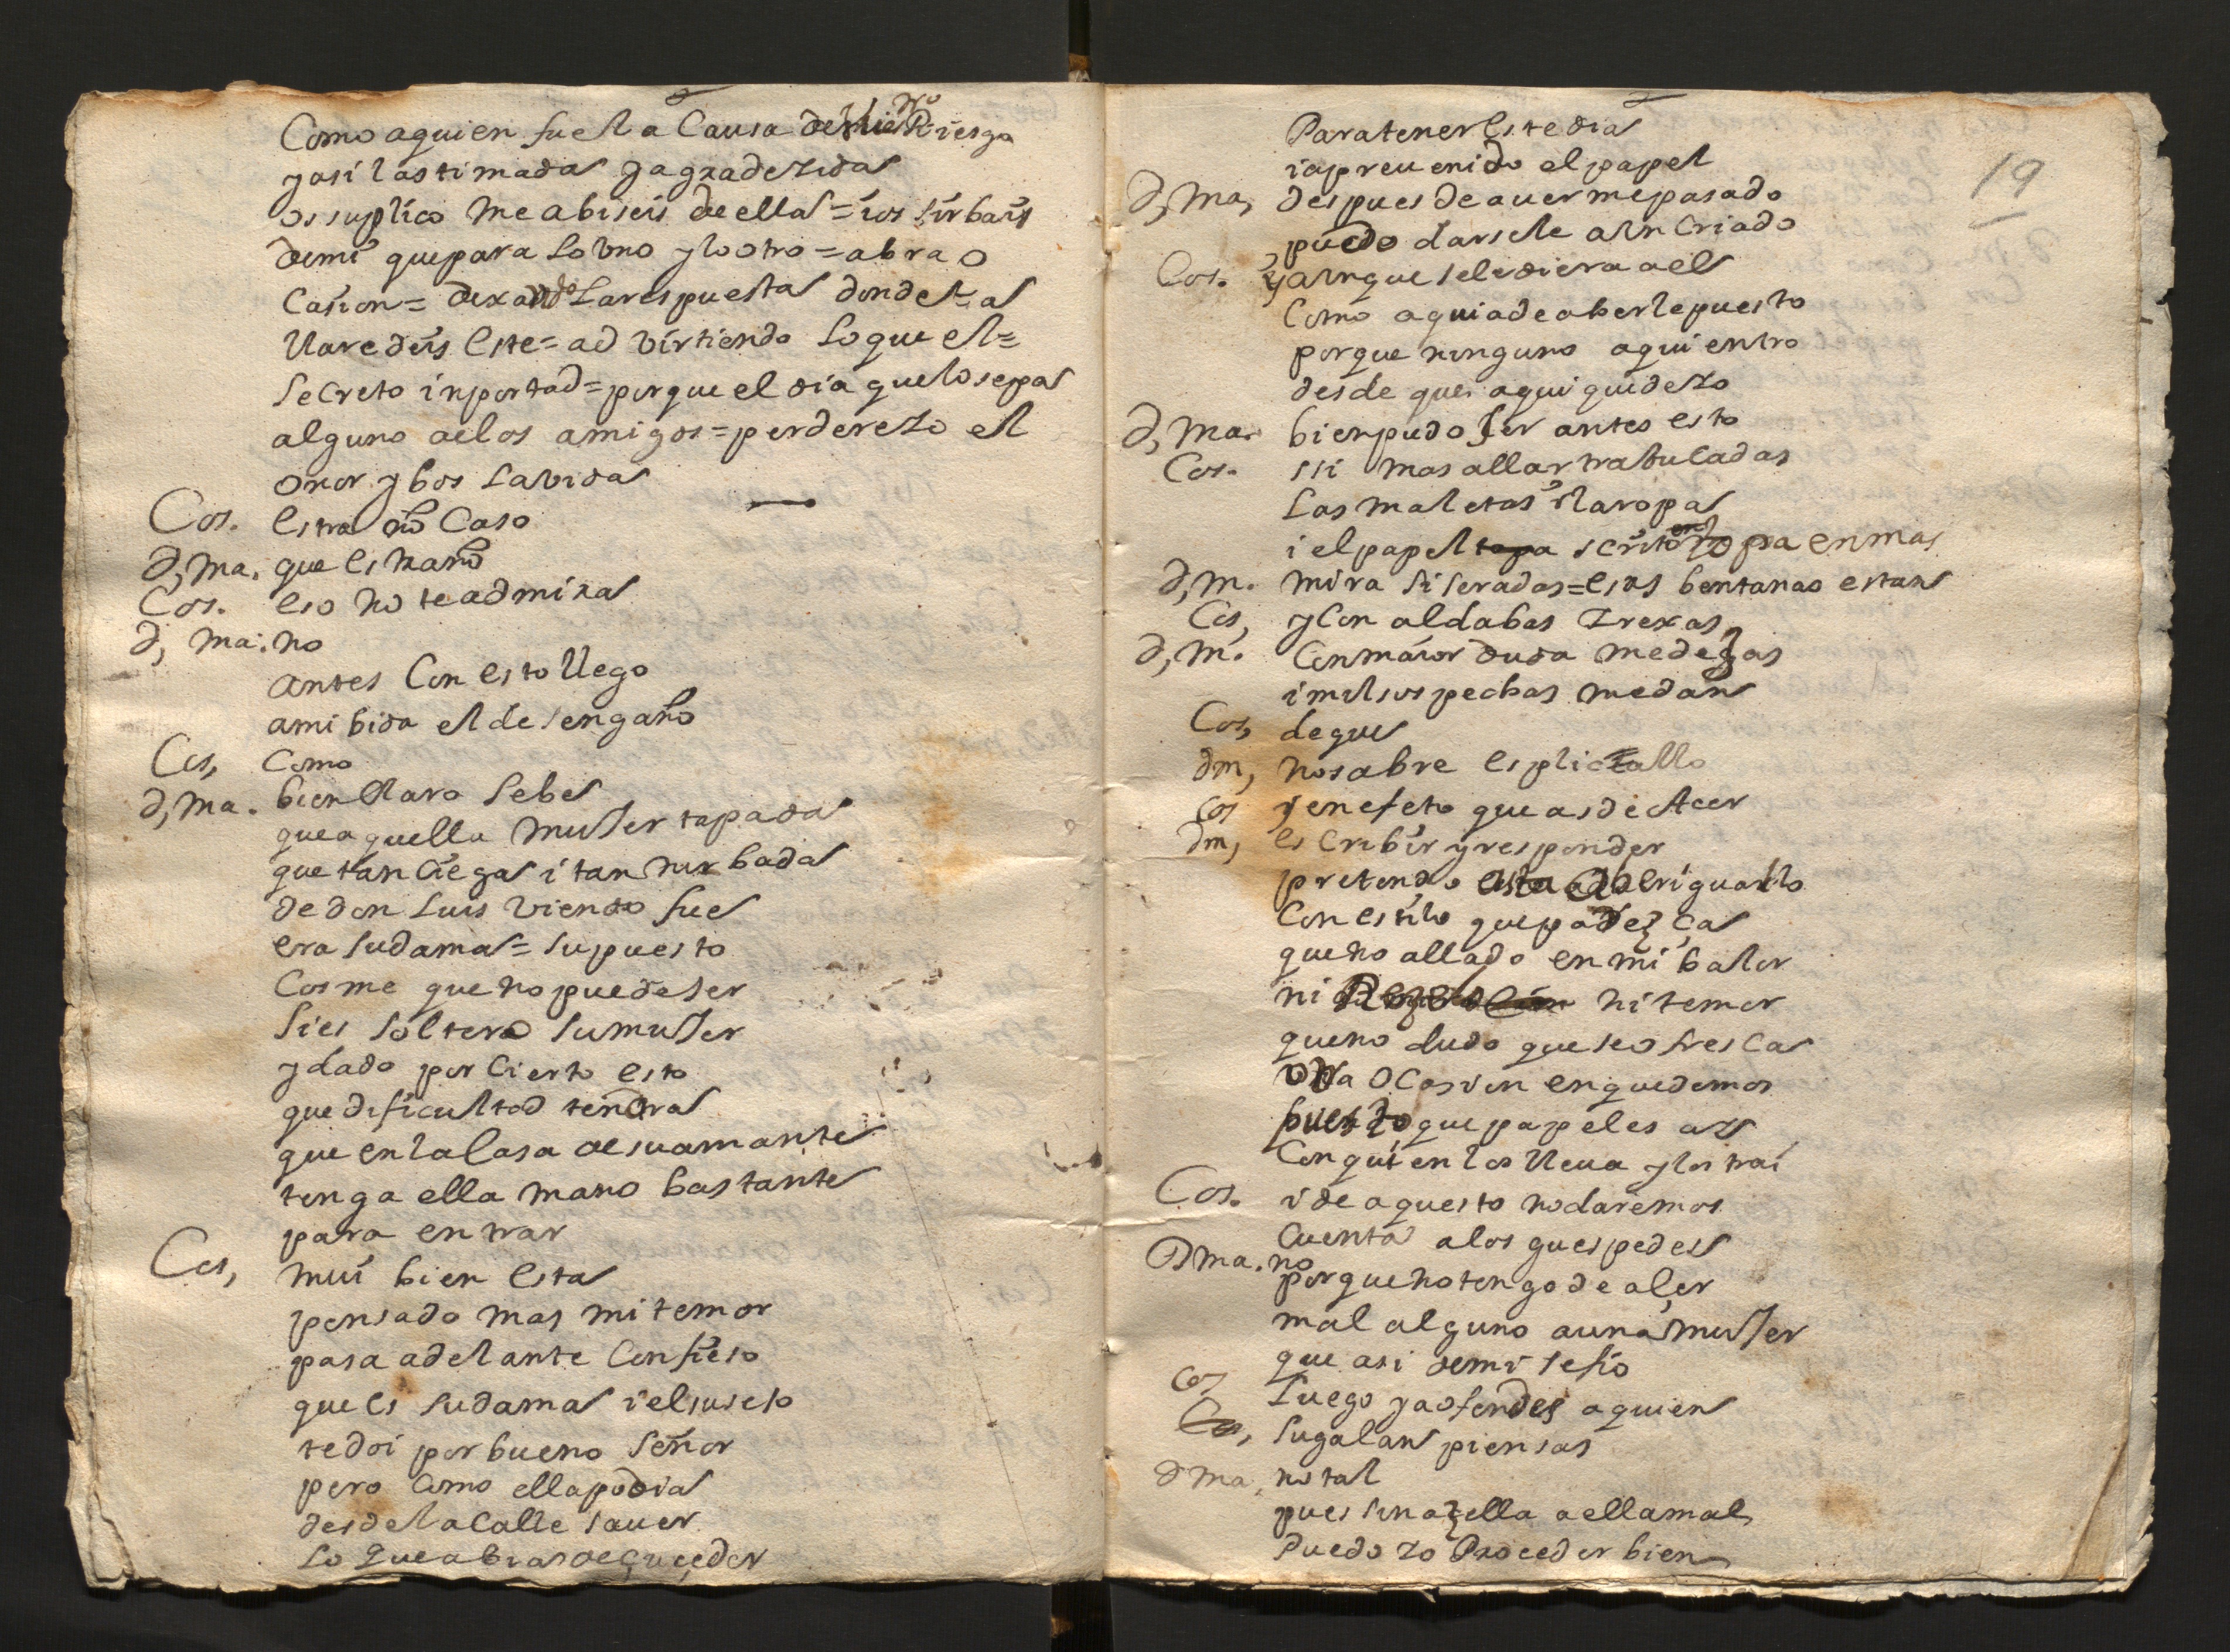 Como aquien fuel a Causa de Riesgo
yasi lastimada yagradezida
os suplico me abiseis de ella = ios sirbais
demi quepara lo vno ylo otro = abra o
Casion = dexando Larespuesta dondel al
llaredeis este = ad virtiendo loque el =
secreto inportad = porque el dia quelo sepa
alguno delos amigos = perderezo el
onor y bos la vida
Cos. estraño Caso
d, ma. que estraño
Cos. eso no te admira
d, ma: no
antes Con esto llego
ami bida el desengaño
Cos, Como
d, ma. bien claro sebe
que aquella muJer tapada
que tan ciega i tan turbada
de don Luis viendo fue
era sudama = supuesto
Cosme que no puedeser
sies soltero su muJer
y dado por Cierto esto
que dificultad tendra
que en la Casa de su amante
tenga ella mano bastante
para entrar
Cos, mui bien esta
pensado mas mi temor
pasa adelante Confieso
que es su dama i el suseto
te doi por bueno señor
pero Como ella podia
desde la Calle sauer
Lo que abia de suçeder
19
Para tener este dia
ia preuenido el papel
d, ma, despues de auerme pasado
puedo darsele a vn Criado
Cos. y aunque sele diera a el
Como aqui a de aberle puesto
porque ninguno aqui entro
desde que aqui quedezo
d, ma. bien pudo ser antes esto
Cos. ssi mas allar trabucadas
Las maletas i la ropa
i el papel scrito topa en mas
d, m. mira si seradas = esas bentanas estan
Cos, y Con aldabas i rexas
d, m. Con maior duda me dejas
i mil sospechas me dan
Cos, de que
dm, no sabre esplicallo
Cos y en efeto que as de Acer
dm, es Cribir y responder
pretendo aberiguallo
Con estilo que padezca
que no allado en mi balor
ni ni temor
que no dudo que se ofresca
otra ocasion en que demos
puesto que papeles ay
Con quien los lleua y los trai
Cos. i de aquesto no daremos
Cuenta a los guespedes
Dma. no
porque no tengo de açer
mal alguno a una muJer
que asi de mi se fio
Cos Luego ya ofendes a quien
su galan piensas
d ma, no tal
pues sin azella a ella mal
Puedo zo Proceder bien